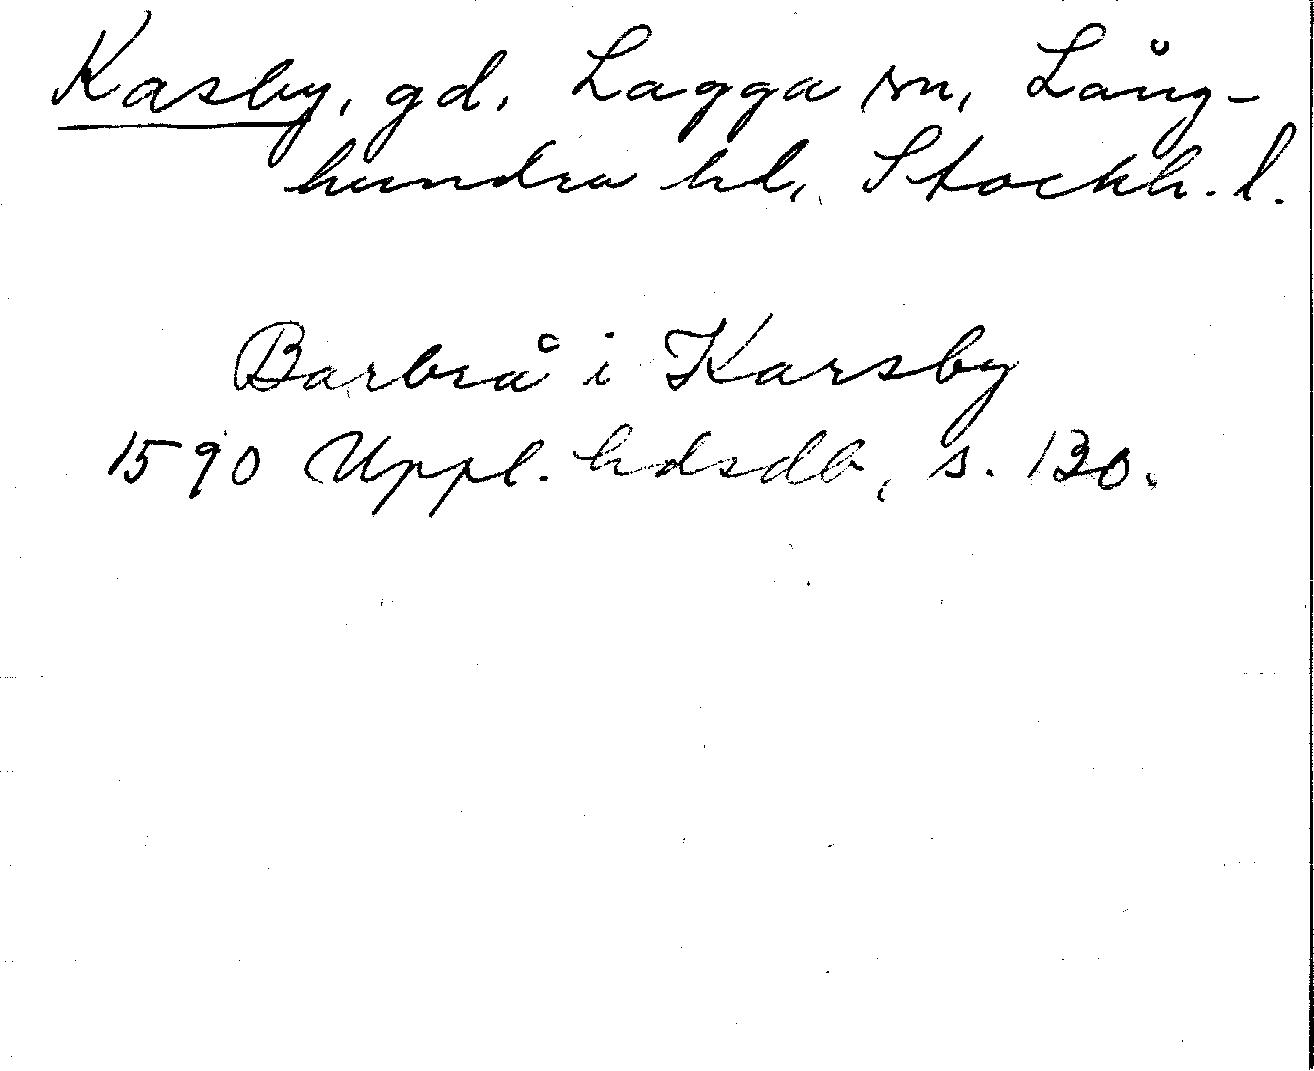 Kasby, gd, Lagga sn, Lång-
hundra hd, Stockh. l.
Barbrå i Karsby
1590 Uppl. hdsdb, s. 130.